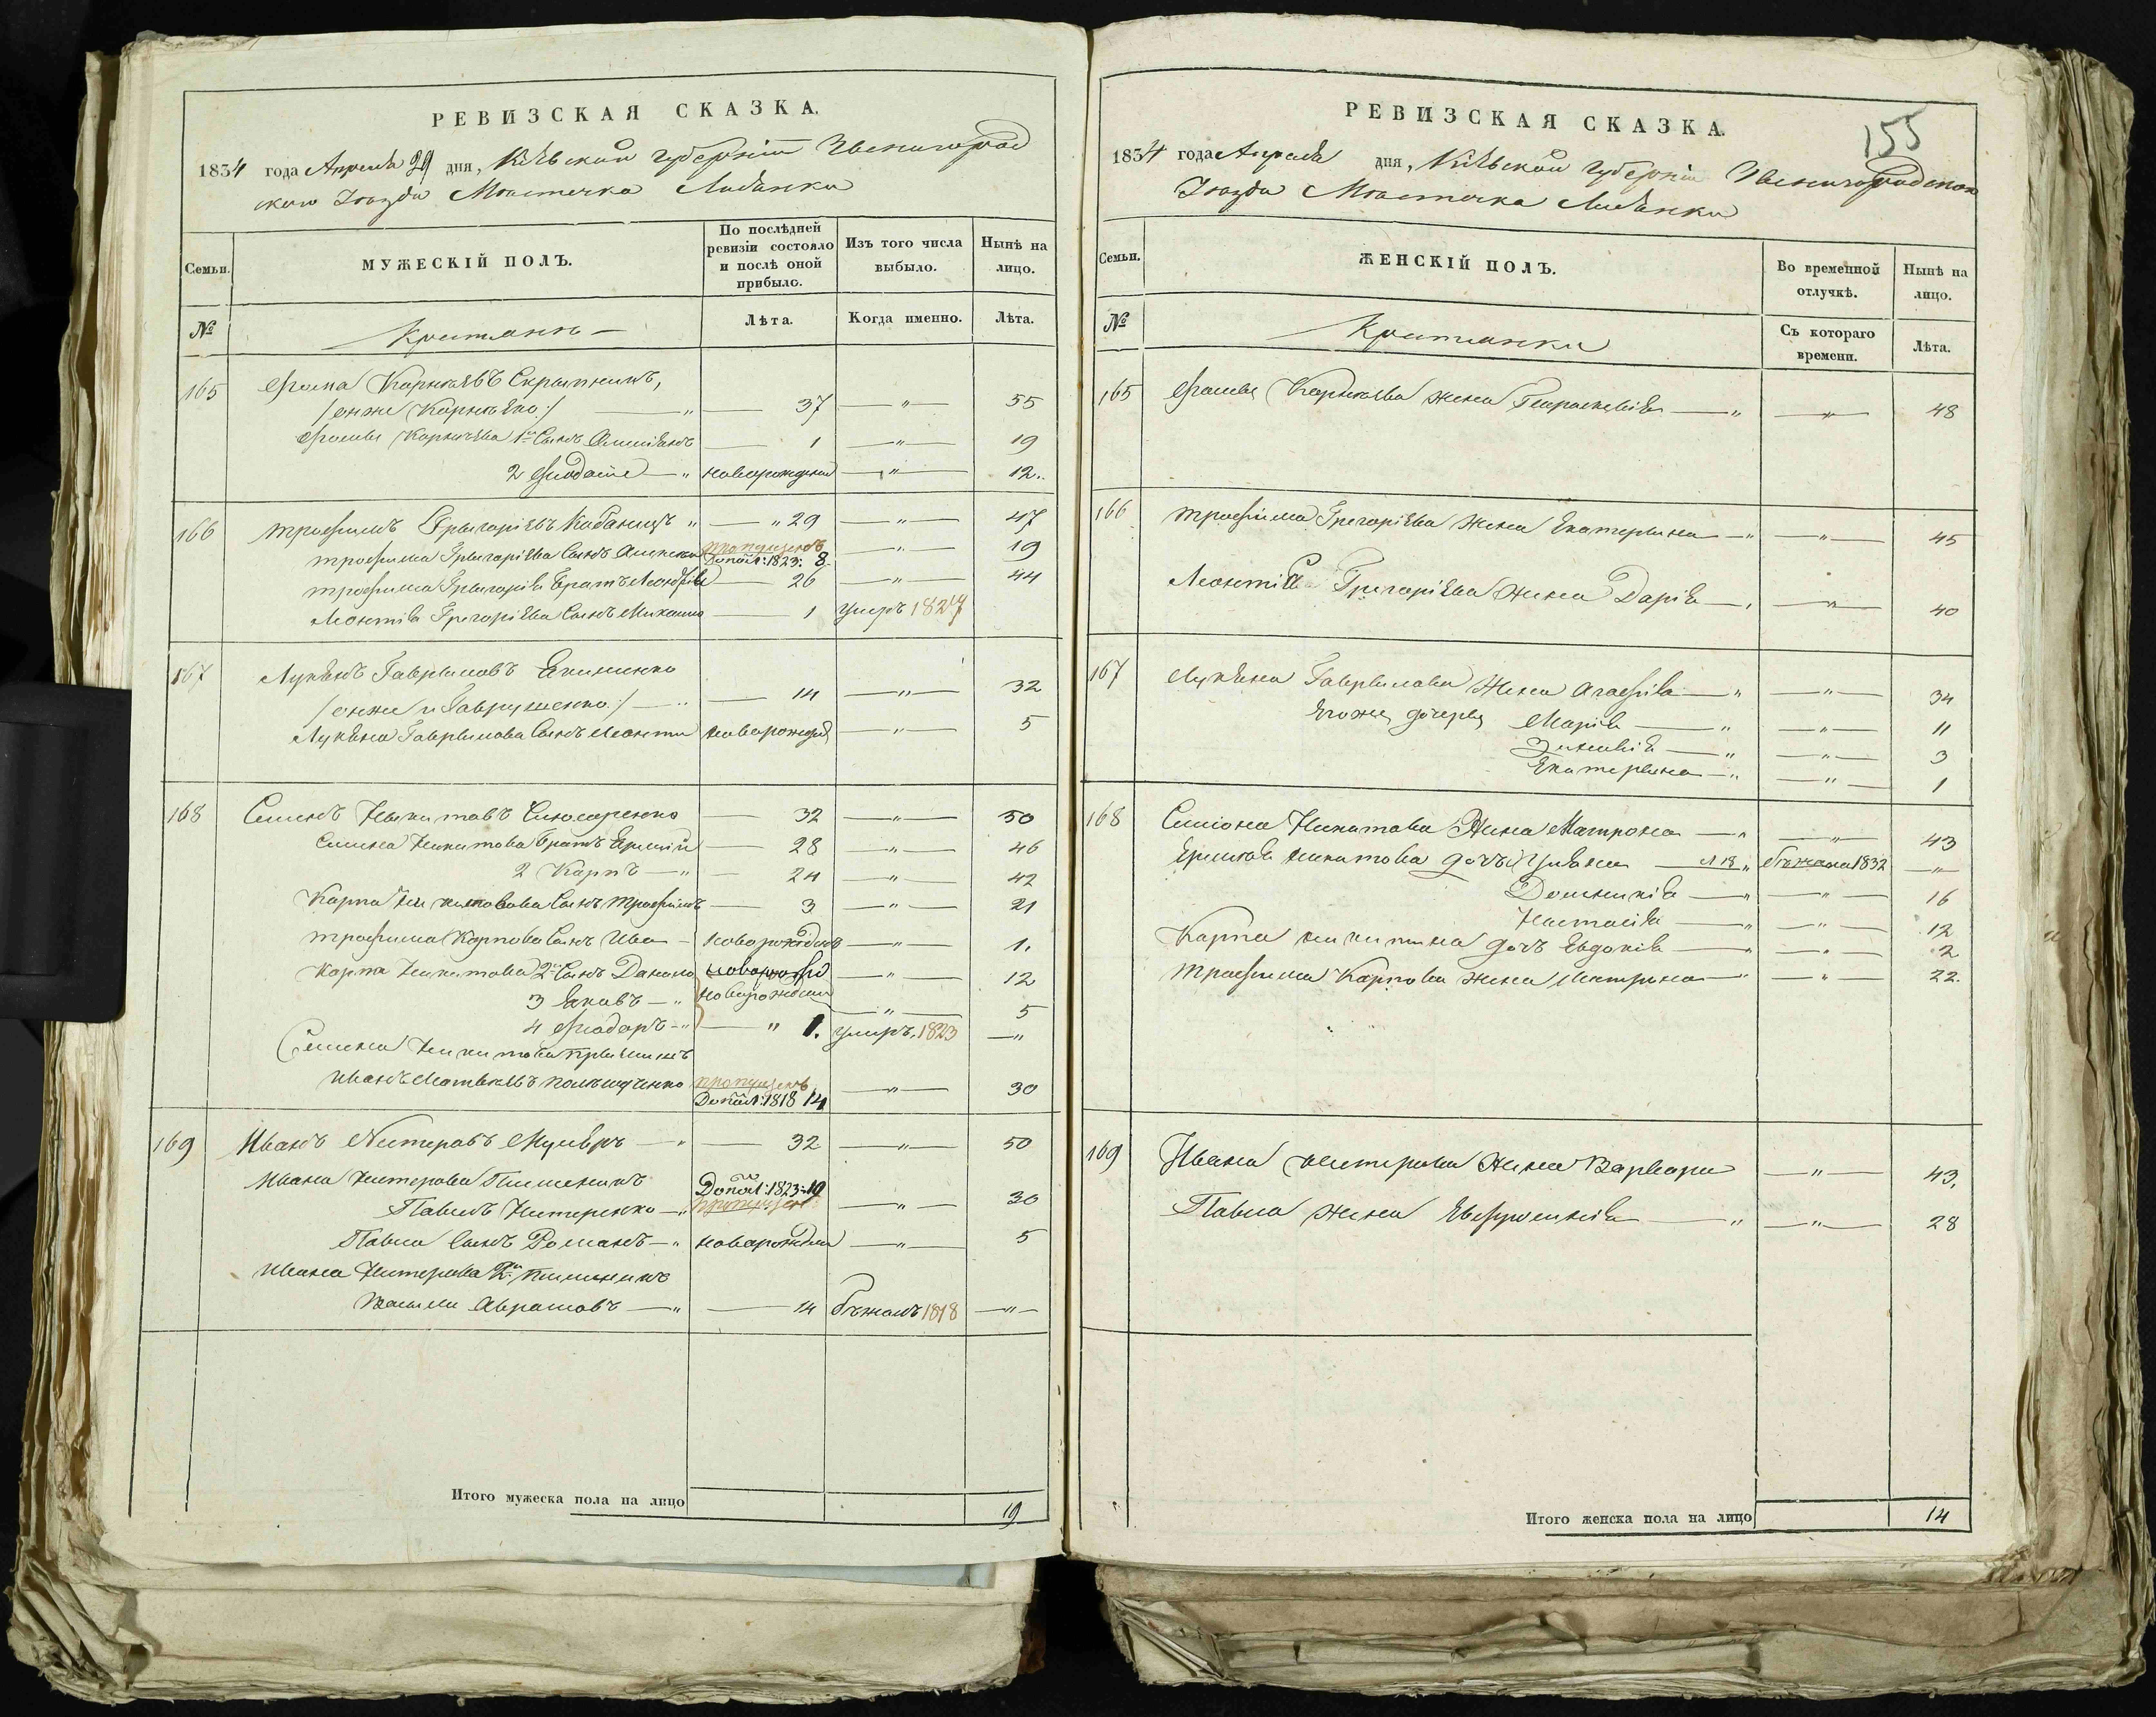 РЕВИЗСКАЯ СКАЗКА.
1834 года Апреля 29 дня, Кіевской губерніи Звенигород
ского Уезда Мѣстечка Лисянки
Семьи.
МУЖЕСКІЙ ПОЛЪ.
По послѣдней ревизіи состояло и послѣ оной прибыло.
Изъ того числа выбыло.
Нынѣ на лицо.
№
Крестьянъ —
Лѣта.
Когда именно.
Лѣта.
165 Фома Корнѣевъ Скрыпникъ,
/онже Корнѣенко:/ — " — 37 — " — 55
Фомы Корнѣева 1й Сынъ — 1 — " — 19
2 — " новорожденъ — " — 12..
166 Трофимъ Грыгоріевъ Кобанецъ " — " 29 — " — 47
Трофима Грыгоріева Сынъ Алексей пропущенъ Допол: 1823: 8. — " — 19
Трофима Грыгоріева Братъ Леонтій — 26 — " — 44
Леонтія Грегоріева Сынъ Михаило — 1 умеръ 1824
167 Лукянъ Гаврыловъ Екименко
/онже и Гаврушенко:/ — " — 14 — " — 32
Лукяна Гаврылова Сынъ Леонти новорожден — " — 5
168 Семенъ Никитовъ Слюсаренко — 32 — " — 50
Семена Никитова Братъ Ермолй — 28 — " — 46
2 Карпъ — " — 24 — " — 42
Карпа Никитовова Сынъ Трофимъ — 3 — " — 21
Трофима Карпова Сынъ Ива — новорожденъ — " — 1.
Карпа Никитова 2й Сынъ Данило новорожд — " — 12
3 Яковъ — " новорожден — " — 5
4 Фіодоръ — " — " 1. умеръ. 1823 — "
Семена Никитова
Иванъ Матвѣевъ пропущенъ Допол: 1818 14 — " — 30
169 Иванъ Нестеровъ — " — 32 — " — 50
Ивана Нестерова Племеникъ
Павелъ Нестеренко — " Допол: 1823: 19 пропущен — " — 30
Павла Сынъ Романъ — " новорожден — " — 5
Ивана Нестерова 2й племеникъ
Василъ Аврамовъ — " — 14 бѣжалъ 1818 — " —
Итого мужеска пола на лицо 19
155
РЕВИЗСКАЯ СКАЗКА.
1834 года Апреля дня, Кіевской губерніи Звенигородскои
Уезда Мѣстечка Лисянки
Семьи.
ЖЕНСКІЙ ПОЛЪ.
Во временной отлучкѣ.
Нынѣ на лицо.
№
Крестянки
Съ котораго времени.
Лѣта.
165 Фомы Корнѣева жена Параскевія — " — " — 48
166 Трофима Грегоріева Жена Екатерына — " — " — 45
Леонтія Грегоріева Жена Дарія — " — " — 40
167 Лукяна Гаврылова Жена Агафія — " — " — 34
Егоже дочеры Марія — " — " — 11
Зиновія — " — " — 3
Екатерына — " — " — 1
168 Симіона Никитова Жена Матрона — " — " — 43
Ермолая Никитова дочъ Уліяна — л 18 " бѣжала 1832 — "
Домникія — " — " — 16
Настасія — " — " — 12
Карпа никитина дочъ Евдокія — " — " — 2
Трофима Карпова Жена Матрона — " — " — 22.
169 Ивана нестерова Жена Варвара — " — 43.
Павла Жена Ефросинія — " — " — 28
Итого женска пола на лицо 14